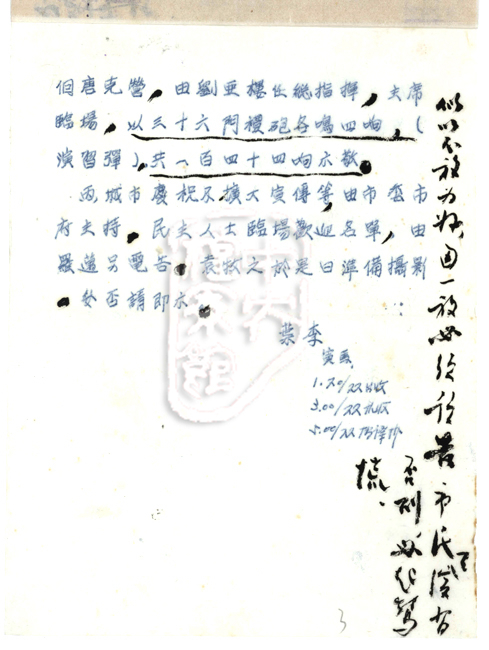 唐克營,由劉亞樓任總指揮,主席
臨場,以三十六門禮砲各鳴四响,(
演習彈),共一百四十四响示敬。
城市慶祝及擴大宣傳等,由市委市
府主持。民主人士臨場歡迎名單,由
羅邁另電告。袁牧之於是日準備攝影
。妥否請即示。
葉李
寅
1.30/22 收
3.00/22
5.00/22 譯抄
似以不放为好因一放必須 告市民
否則必起驚
慌.
3